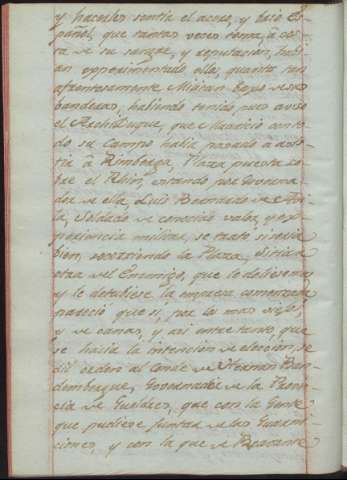 y hacerles sentia el acero, y brio Es-
pañol, que tantas veces toma, à cos-
ta de su sangre, y reputacion, habi-
an experimentado ellos, quanto tan
afrentosamente Militan baxo de sus
banderas; habiendo tenido pues aviso
el ArchiDuque, que Mauricio con to-
do su Campo habia pasado a asis-
tir à Rimberga, Plaza puesta so-
bre el Rhin, estando por Governa-
dor de ella Luis Bernardo de Avi-
la, Soldado de conocido valor, y ex-
periencia militar, se trató si seria
bien, socorriendo la Plaza, sitiar
otra del Enemigo, que le doliese mas
y le detubiese la empresa comenzada
pareció que si, por lo mas viejo,
y de canas, y asi entretanto que
se hacia la intencion de eleccion, se
dió orden al Conde de Herman Ban-
demberque, Governador de la Provin-
cia de Gueldres, que con la Gente
que pudiese juntar de las Guarni-
ciones, y con la que de Bravante